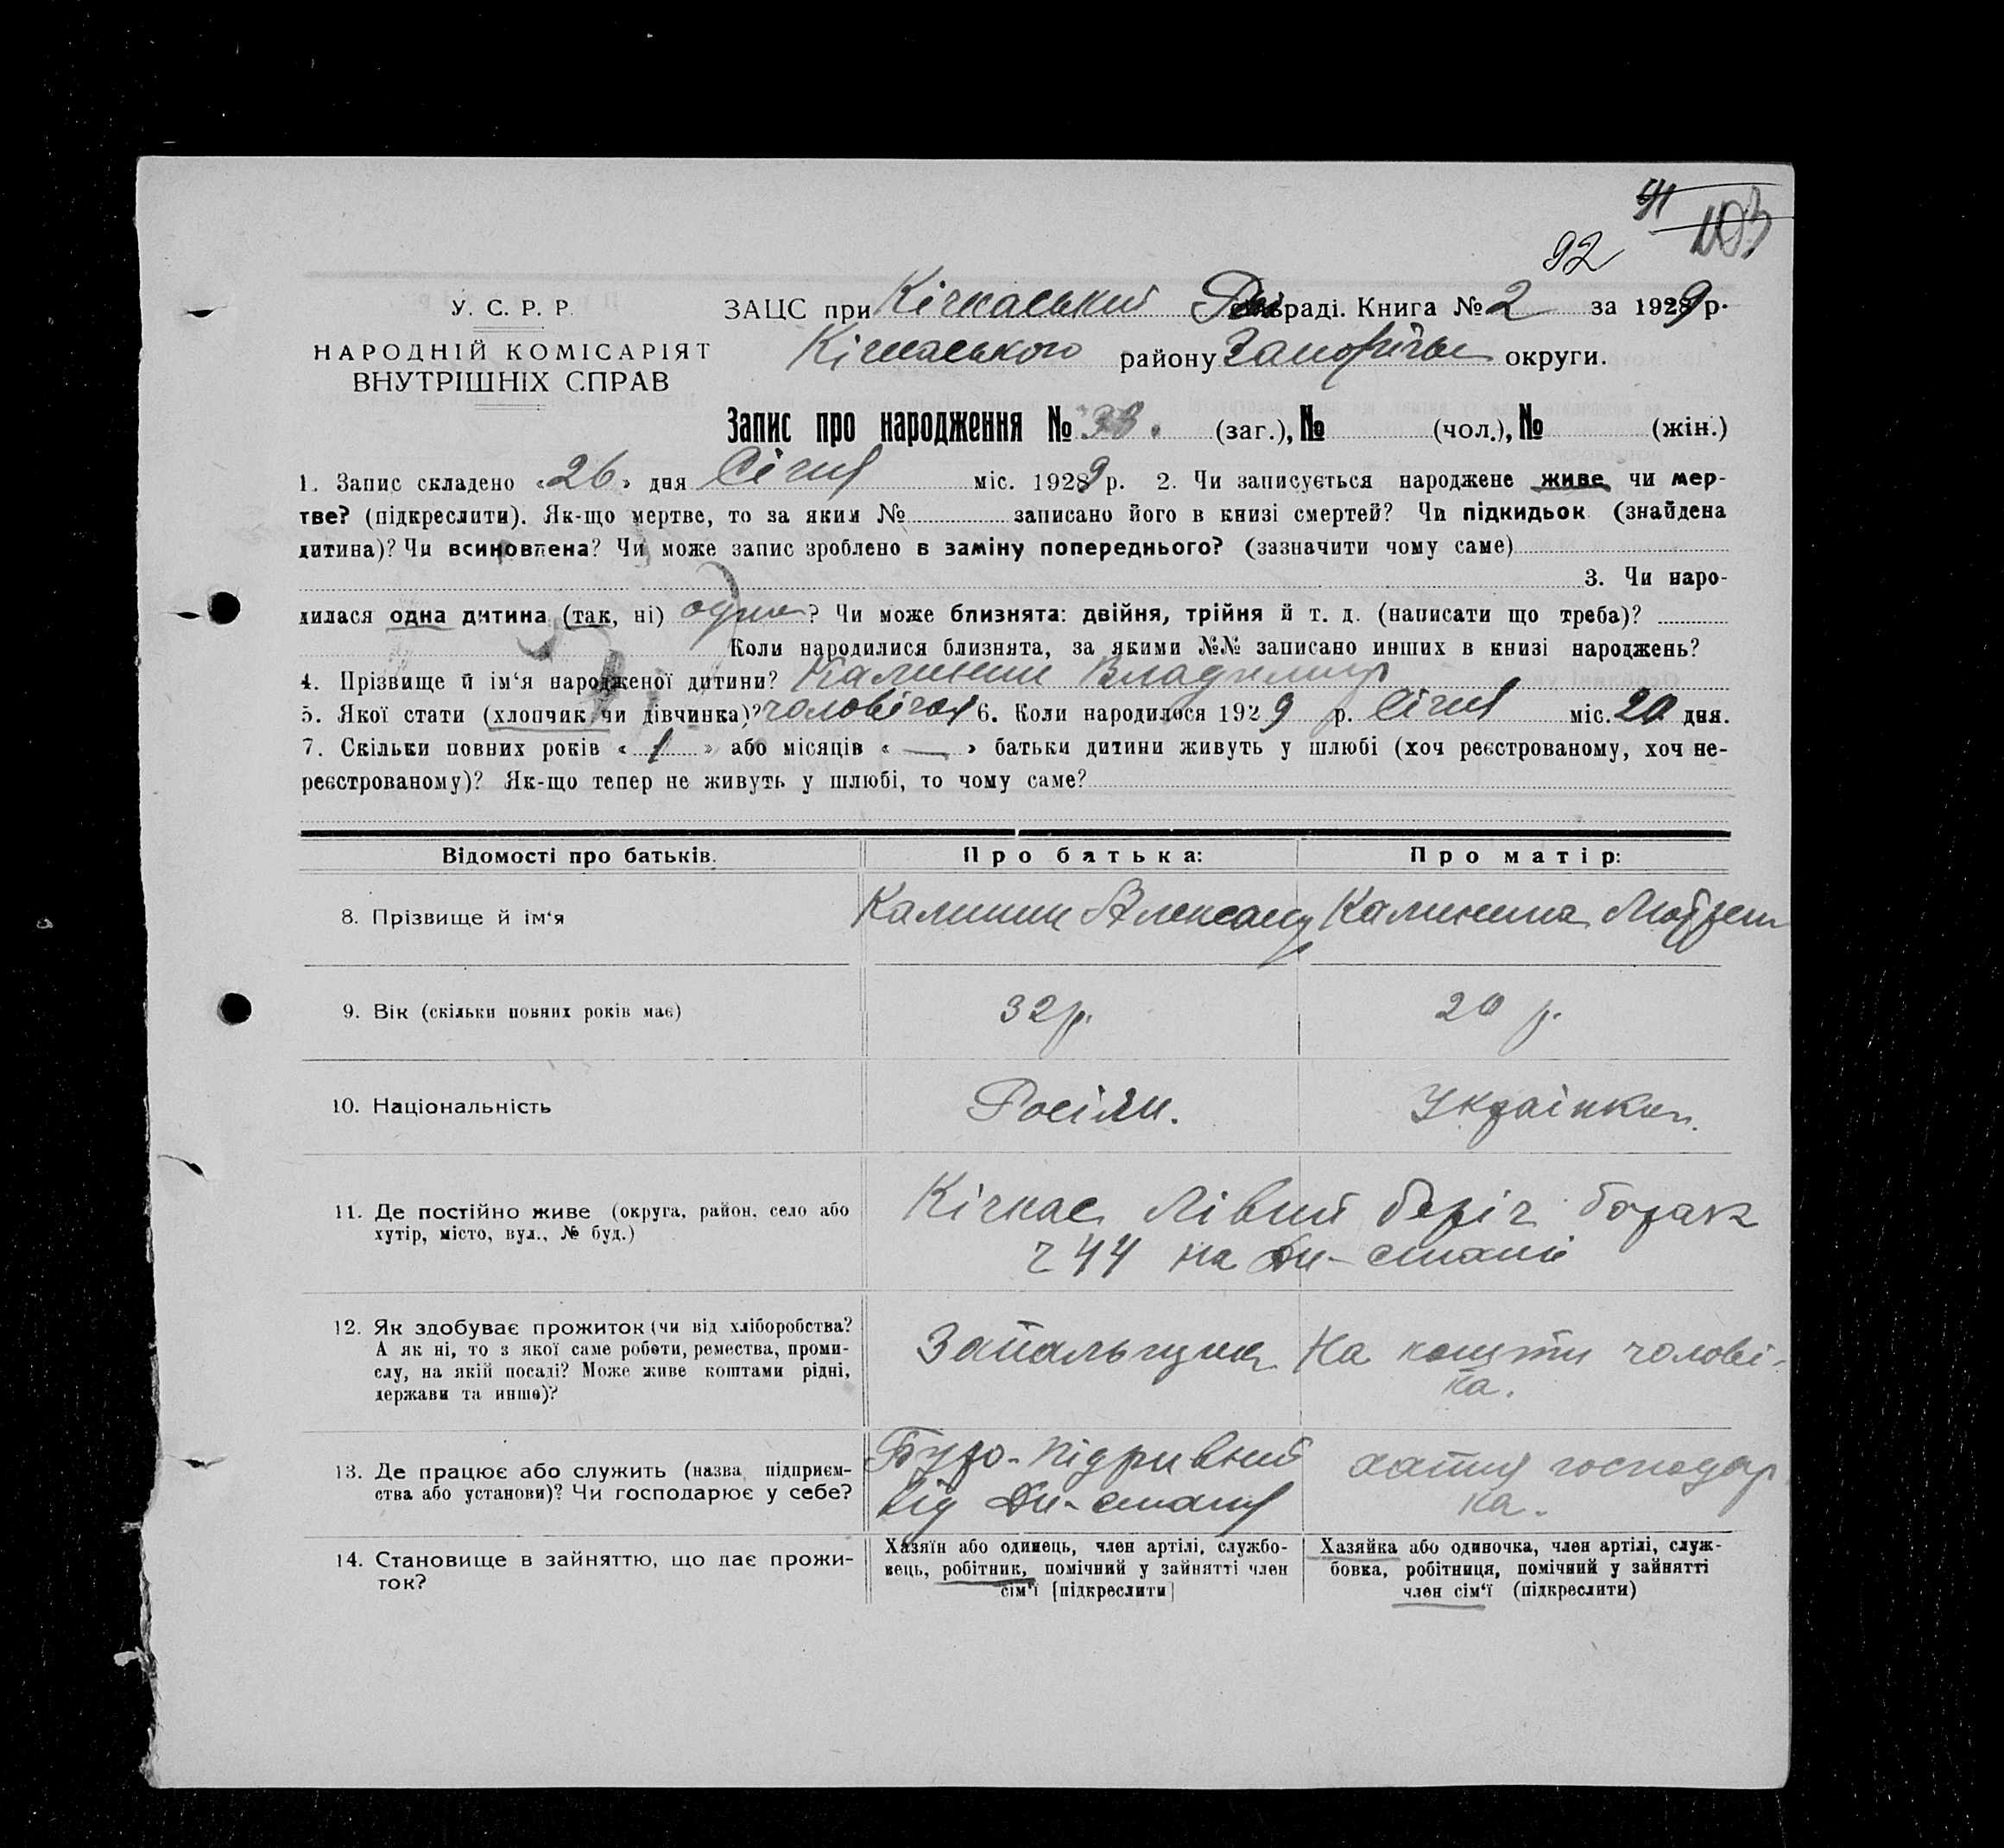 91 103
92
У. С. Р. Р. ЗАЦС при Кічкаський Рай раді. Книга № 2 за 1929 р.
НАРОДНІЙ КОМІСАРІЯТ Кічкаського району Запоріжы округи.
ВНУТРІШНІХ СПРАВ
Запис про народження № 33. (заг.), № (чол.), № (жін.)
1. Запис складено «26» дня Січня міс. 1929 р. 2. Чи записується народжене живе чи мер-
тве? (підкреслити). Як-що мертве, то за яким № записано його в книзі смертей? Чи підкидьок (знайдена
дитина)? Чи всиновлена? Чи може запис зроблено в заміну попереднього? (зазначити чому саме)
3. Чи наро-
дилася одна дитина (так, ні) одна? Чи може близнята: двійня, трійня й т. д. (написати що треба)?
Коли народилися близнята, за якими №№ записано инших в книзі народжень?
4. Прізвище й ім‘я народженої дитини? Калинин Владимир
5. Якої стати (хлопчик чи дівчинка)? чоловічої 6. Коли народилося 1929 р. Січня міс. 20 дня.
7. Скільки повних років «1» або місяців «—» батьки дитини живуть у шлюбі (хоч реєстрованому, хоч не-
реєстрованому)? Як-що тепер не живуть у шлюбі, то чому саме?
Відомості про батьків. Про батька: Про матір:
8. Прізвище й ім‘я Калинин Александр Калинина
9. Вік (скільки повних років має) 32 р. 20 р.
10. Національність Росіян. Українка.
11. Де постійно живе (округа, район, село або Кічкас Лівий беріг барак
хутір, місто, вул., № буд.) ч 44 на Дн-стані
12. Як здобуває прожиток (чи від хліборобства? Запальщик На кошти чолові-
А як ні, то з якої саме роботи, ремества, проми- ка.
слу, на якій посаді? Може живе коштами рідні,
держави та инше)?
13. Де працює або служить (назва підприєм- Буро-підривний хатня господар
ства або установи)? Чи господарює у себе? від Дн-стану ка.
14. Становище в зайняттю, що дає прожи- Хазяїн або одинець, член артілі, службо- Хазяйка або одиночка, член артілі, служ-
ток? вець, робітник, помічний у зайнятті член бовка, робітниця, помічний у зайнятті
сім‘ї [підкреслити] член сім‘ї (підкреслити)